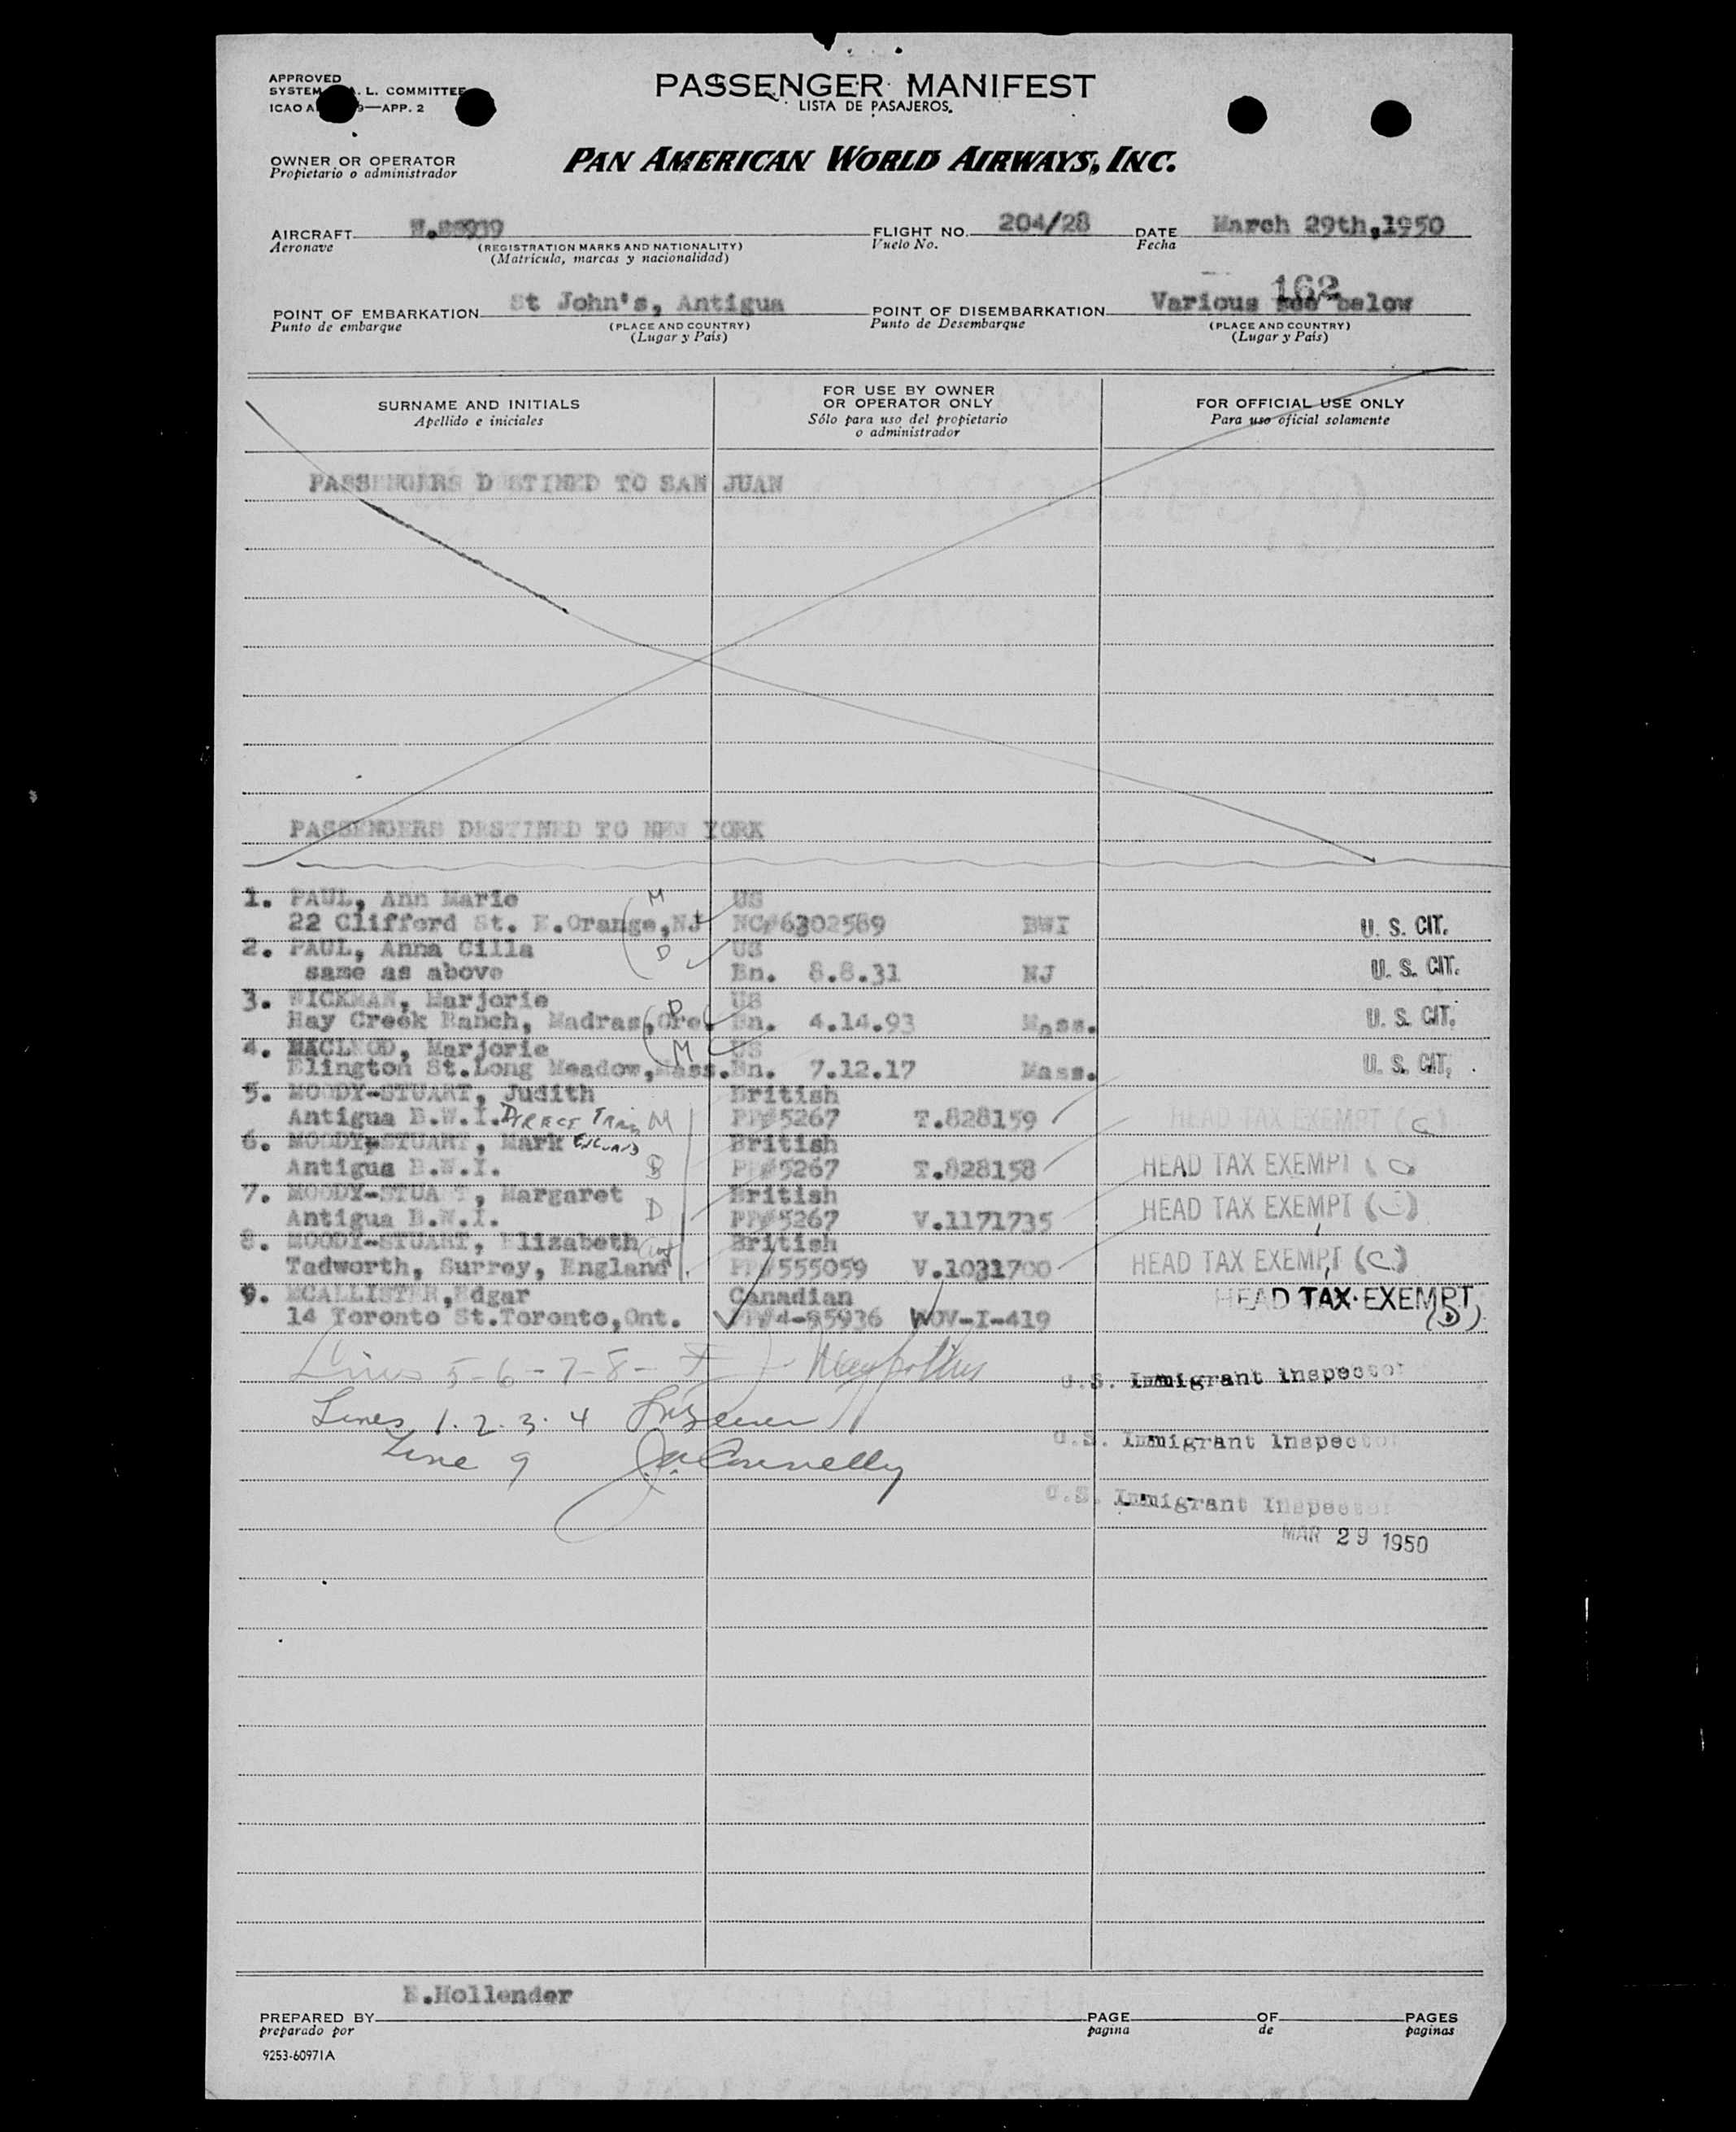 APPROVED
SYSTEM A. L. COMMITTEE
ICAO A 9—APP. 2
PASSENGER MANIFEST
LISTA DE PASAJEROS.
OWNER OR OPERATOR
Propietario o administrador
PAN AMERICAN WORLD AIRWAYS, INC.
AIRCRAFT
Aeronave
(REGISTRATION MARKS AND NATIONALITY)
(Matrícula, marcas y nacionalidad)
FLIGHT NO. 204/28
Vuelo No.
DATE March 29th,1950
Fecha
162
POINT OF EMBARKATION St John's, Antigua
Punto de embarque
(PLACE AND COUNTRY)
(Lugar y País)
POINT OF DISEMBARKATION Various see below
Punto de Desembarque
(PLACE AND COUNTRY)
(Lugar y País)
SURNAME AND INITIALS
Apellido e iniciales
FOR USE BY OWNER
OR OPERATOR ONLY
Sólo para uso del propietario
o administrador
FOR OFFICIAL USE ONLY
Para uso oficial solamente
PASSENGERS DESTINED TO SAN JUAN
PASSENGERS DESTINED TO NEW YORK
1. PAUL, Ann Marie M US
22 Clifford St. E.Orange,NJ NC#6302589 BWI U. S. CIT.
2. PAUL, Anna Cilla D US
same as above Bn. 8.8.31 NJ U. S. CIT.
3. WICKMAN, Marjorie D US
Hay Creek Ranch, Madras,Ore. Bn. 4.14.93 Mass. U. S. CIT.
4. MACLEOD, Marjorie M US
Elington St.Long Meadow,Mass. Bn. 7.12.17 Mass. U. S. CIT.
5. MOODY-STUART, Judith British
Antigua B.W.I. DIRECT TRAN M PP#5267 T.828159 HEAD TAX EXEMPT (C)
6. MOODY-STUART, Mark ENGLAND British
Antigua B.W.I. B PP#5267 T.828158 HEAD TAX EXEMPT (C)
7. MOODY-STUART, Margaret British
Antigua B.W.I. D PP#5267 V.1171735 HEAD TAX EXEMPT (C)
8. MOODY-STUART, Elizabeth Aunt British
Tadworth, Surrey, England PP#555059 V.1031700 HEAD TAX EXEMPT (C)
9. MCALLISTER,Edgar Canadian HEAD TAX EXEMPT
14 Toronto St.Toronto,Ont. PP#4-85936 WOV-I-419 (D)
Lines 5-6-7-8-
U.S. Immigrant Inspector
Lines 1.2.3.4
U.S. Immigrant Inspector
Line 9 J.A. Connelly
U.S. Immigrant Inspector
MAR 29 1950
E.Hollender
PREPARED BY
preparado por
PAGE
pagina
OF
de
PAGES
paginas
9253-60971A